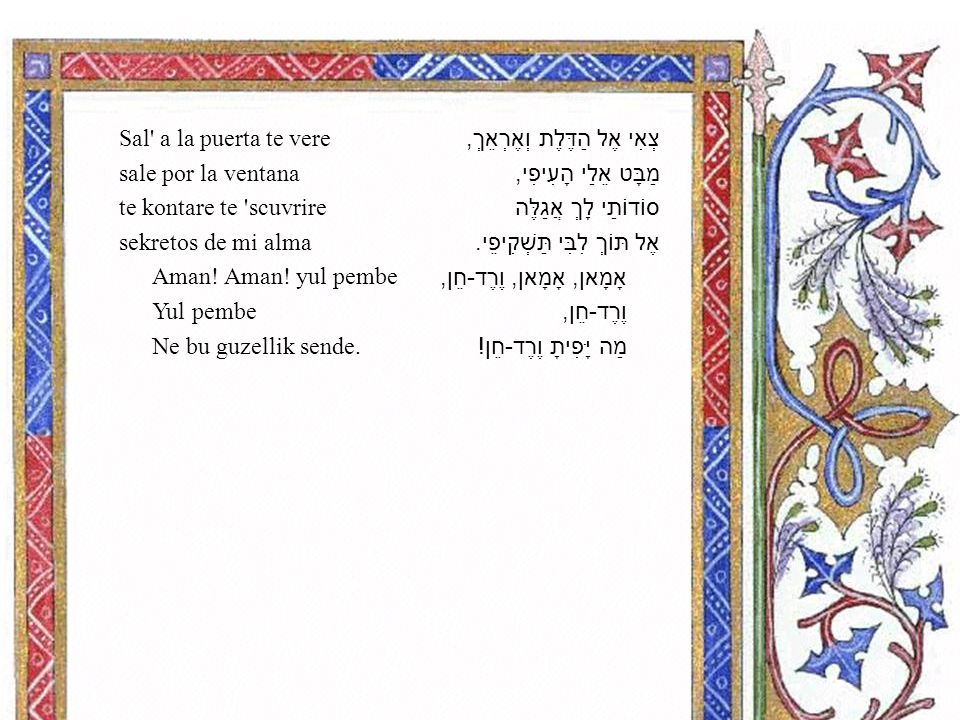 Sal' a la puerta te vere צְאִי אֶל הַדֶּלֶת וְאֶרְאֵךְ,
sale por la ventana מַבָּט אֵלַי הָעִיפִי,
te kontare te 'scuvrire סוֹדוֹתַי לָךְ אֲגַלֶּה
sekretos de mi alma אֶל תּוֹךְ לִבִּי תַּשְׁקִיפִי.
Aman! Aman! yul pembe אָמָאן, אָמָאן, וֶרֶד-חֵן,
Yul pembe וֶרֶד-חֵן,
Ne bu guzellik sende. מַה יָּפִיתָ וֶרֶד-חֵן!